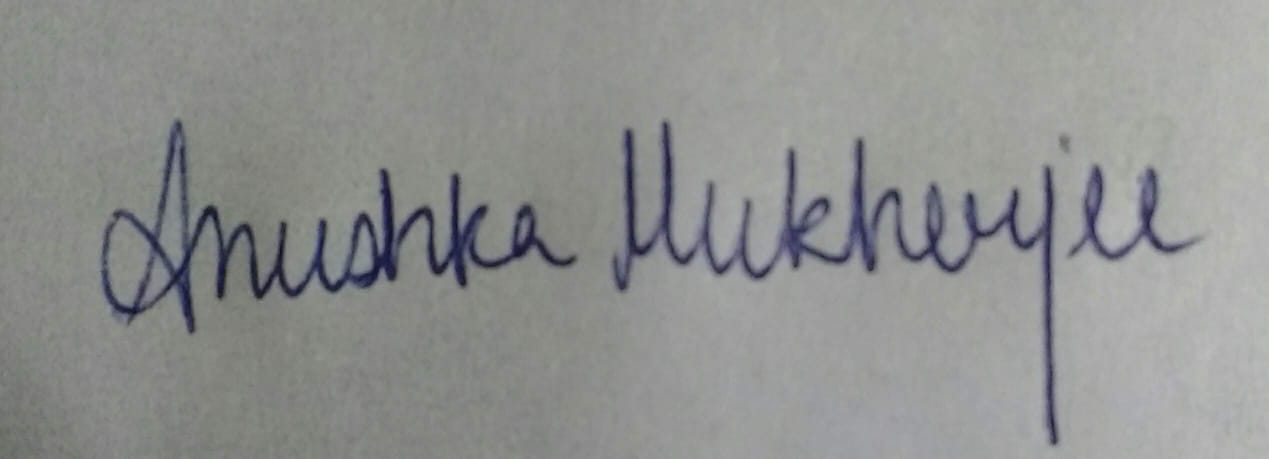 Anushka Mukherjee